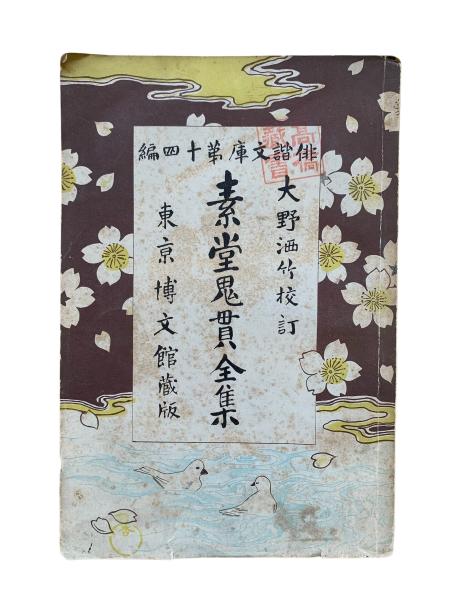 俳諧文庫第十四編
大野洒竹校訂
素堂鬼貫全集
東京博文館蔵版
高橋蔵書